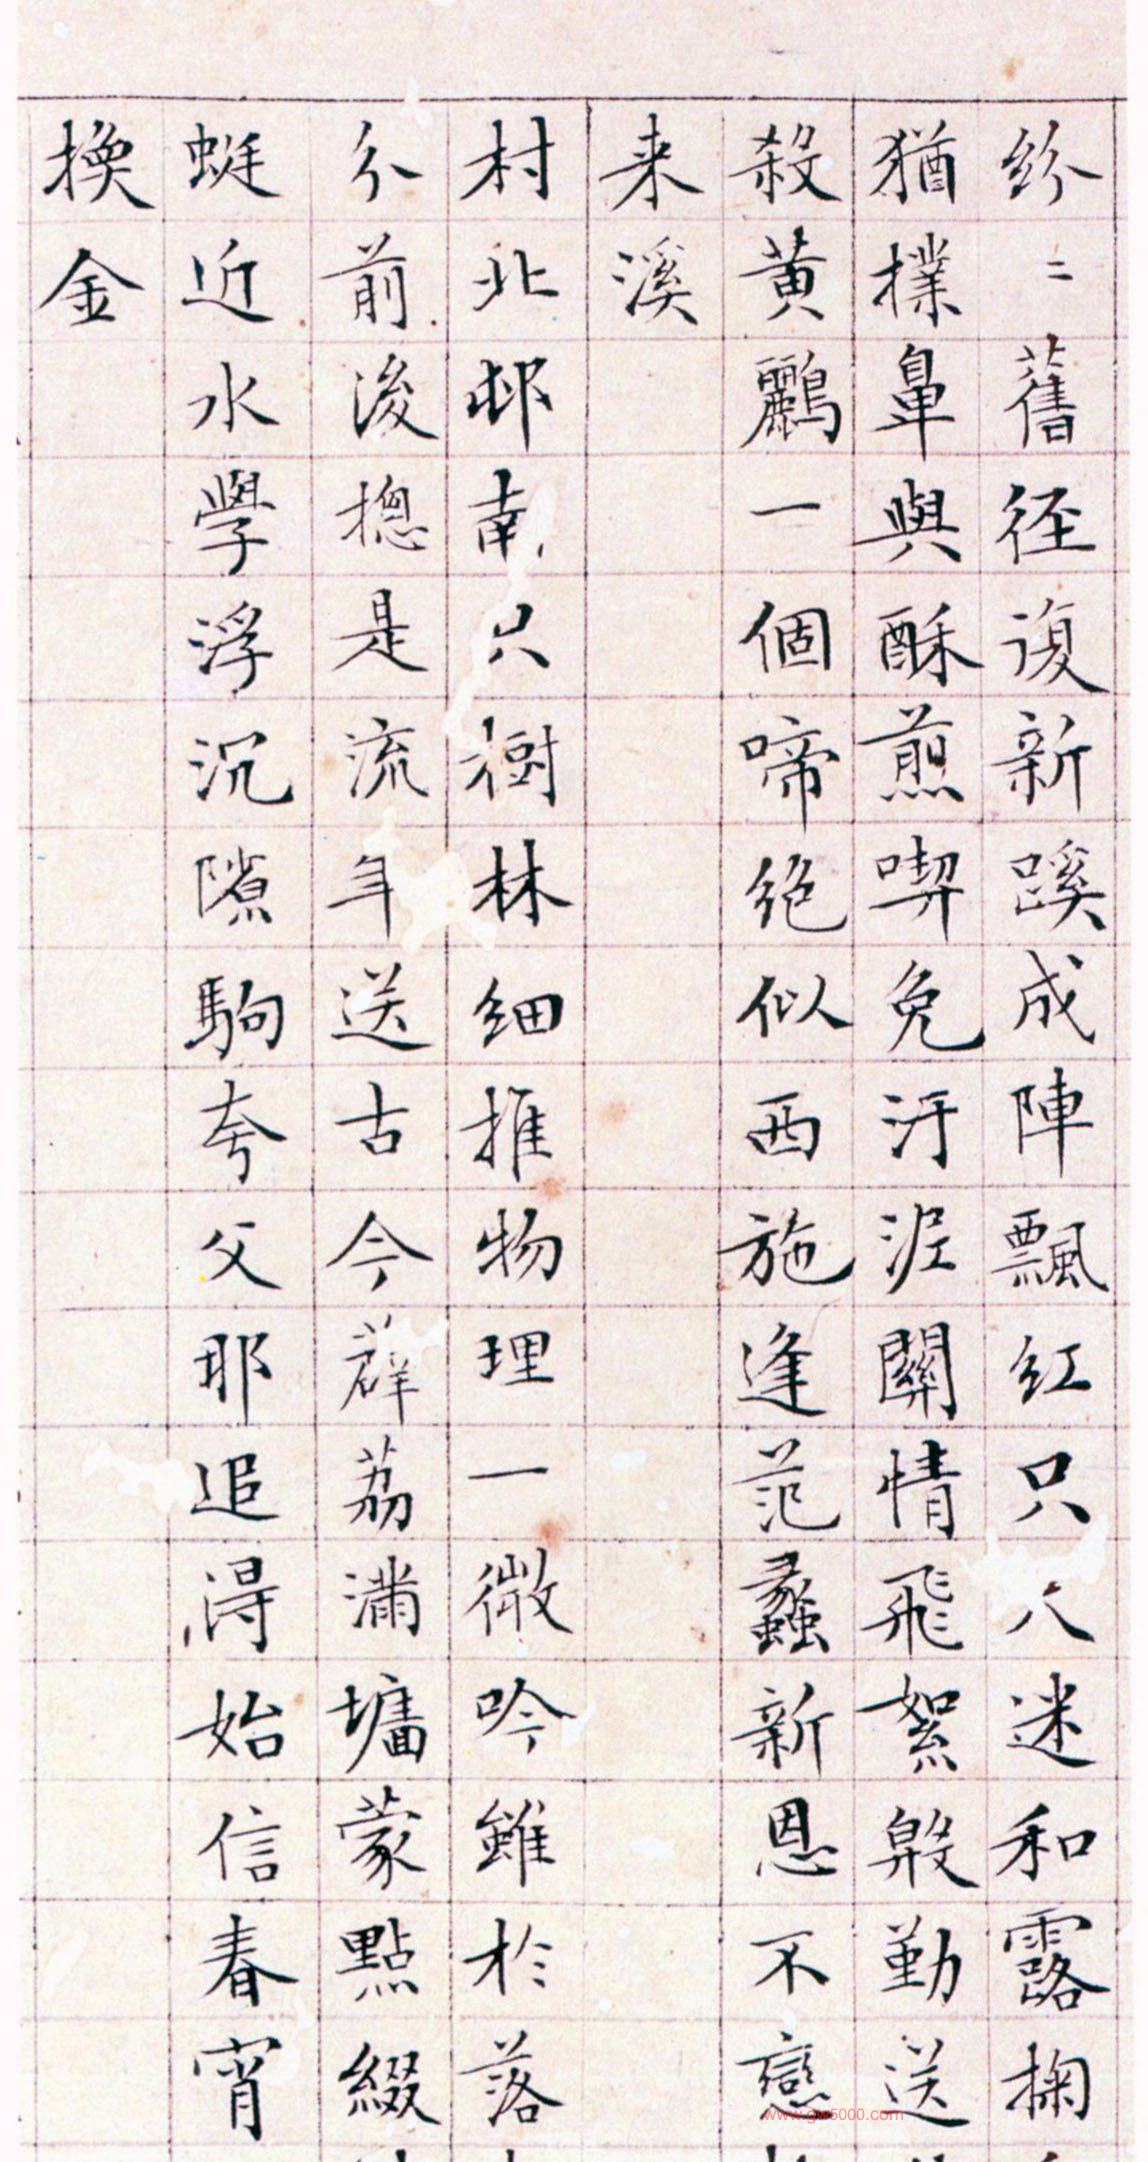 紛二舊徑復新蹊成陣飄紅只八迷和露掬
猶撲鼻與酥煎喫免汙泥關情飛絮慇勤送
殺黃鸝一個啼絕似西施逢范蠡新恩不戀
来溪
村北邨南只樹林細推物理一微吟雖於落
介前後揔是流年送古今薜荔滿墻蒙點綴
蜓近水學浮沉隙駒夸父耶追淂始信春宵
換金
www.gw5000.com